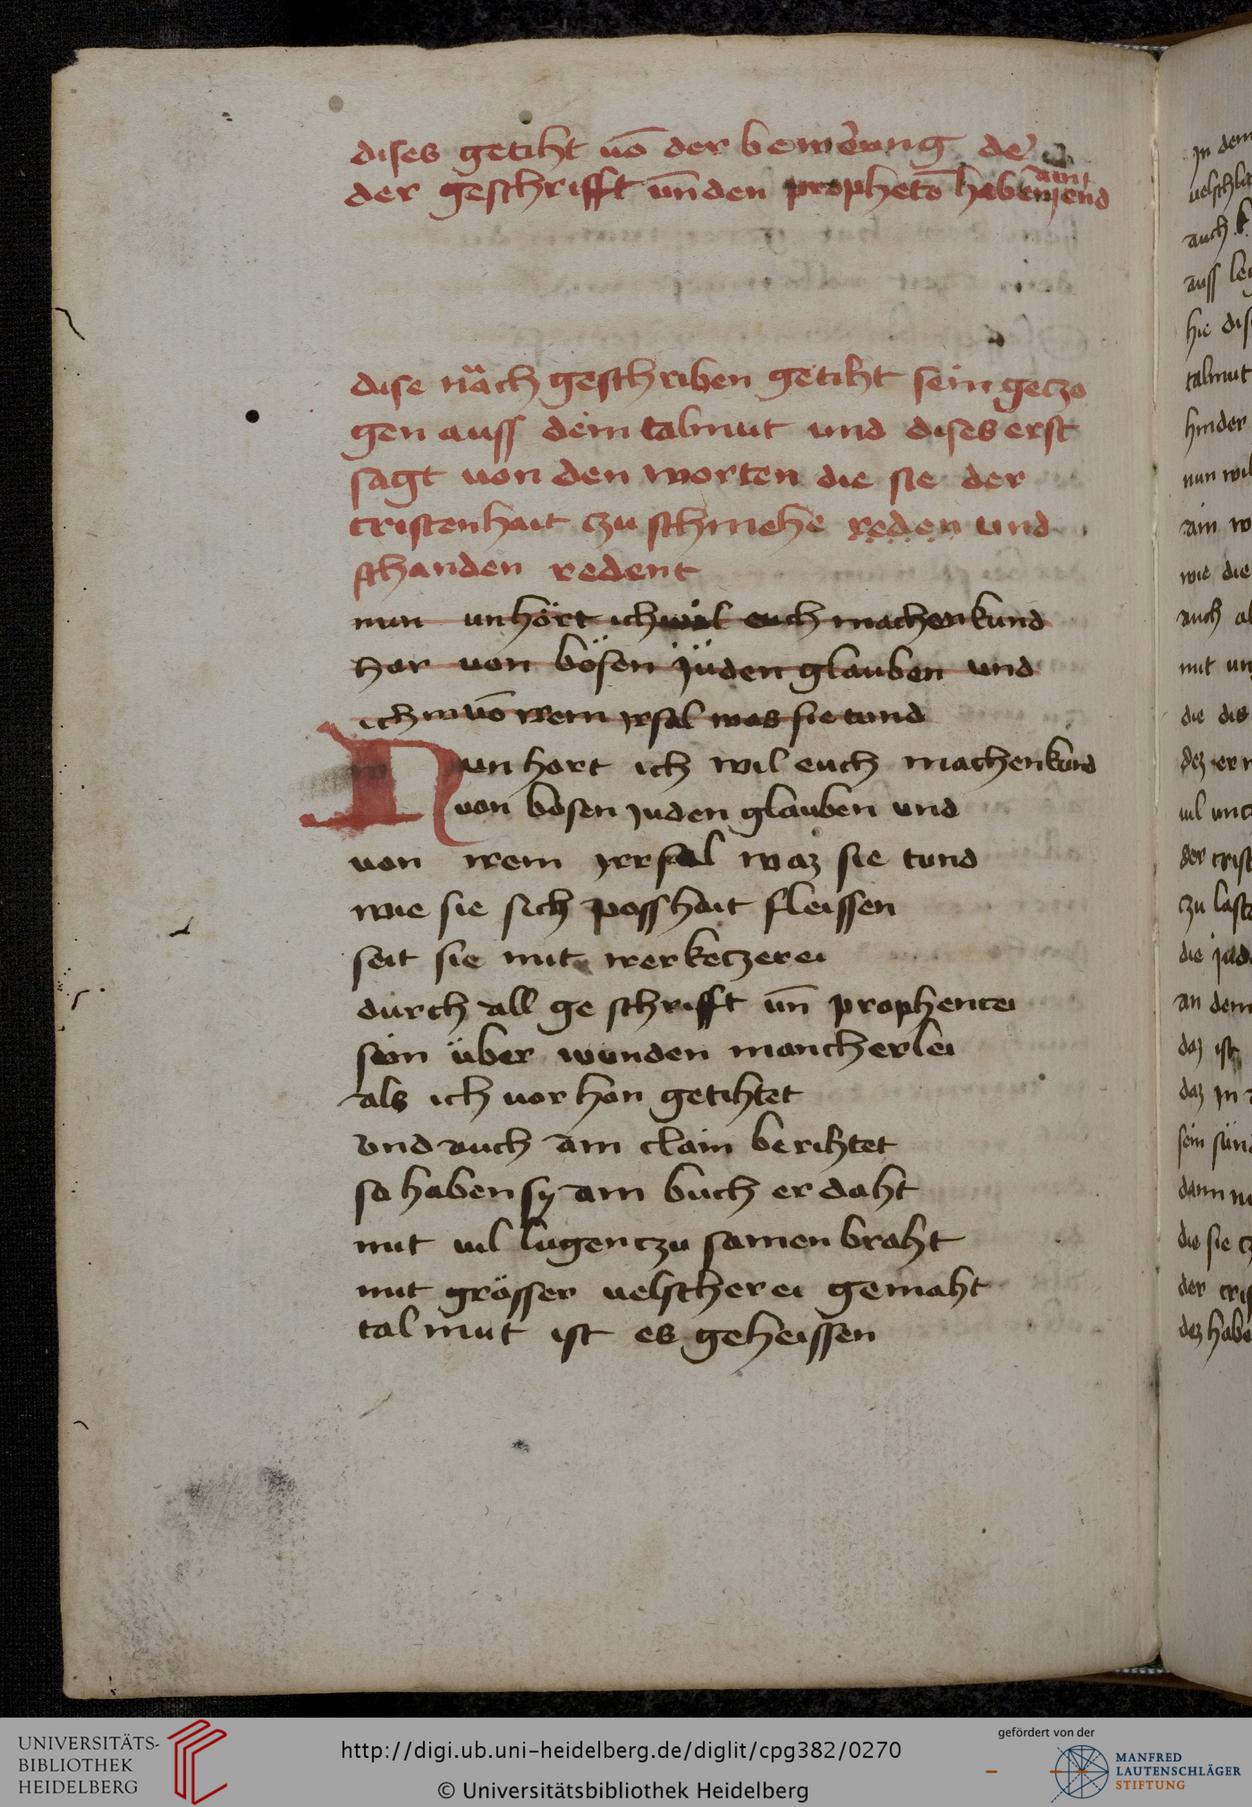 dises getiht uō der bewerung de
der geschrifft uñ den prophetō haben ain end
dise näch geschriben getiht sein geczo
gen auss dem talmut und dises erst
sagt von den worten die sie der
cristenhait czu schmehe reden und
schanden redent
nun hört ich wil euch machen kund
von bösen jüden glauben und
irsal was sie tund
Nun hort ich wil euch machen kund
von bosen juden glauben und
von irem yrrsal waz sie tund
wie sie sich posshait fleissen
seit sie mit irer keczerei
durch all ge schrifft uñ prophencei
sein über wunden mancherlei
als ich vor hon getihtet
vnd auch am clain berihtet
so haben sy am buch er daht
mit uil lugen czu samen braht
mit grösser uelscherei gemaht
talmut ist es geheissen
In dem
auch
auss
hie
talmut
hinder
nun wil
ain
wie die
auch
mit
die
der
czu
die
an dem
daz ist
daz in
sein
die sie
der
UNIVERSITÄTS-
BIBLIOTHEK
HEIDELBERG
http://digi.ub.uni-heidelberg.de/diglit/cpg382/0270
© Universitätsbibliothek Heidelberg
gefördert von der
MANFRED
LAUTENSCHLÄGER
STIFTUNG